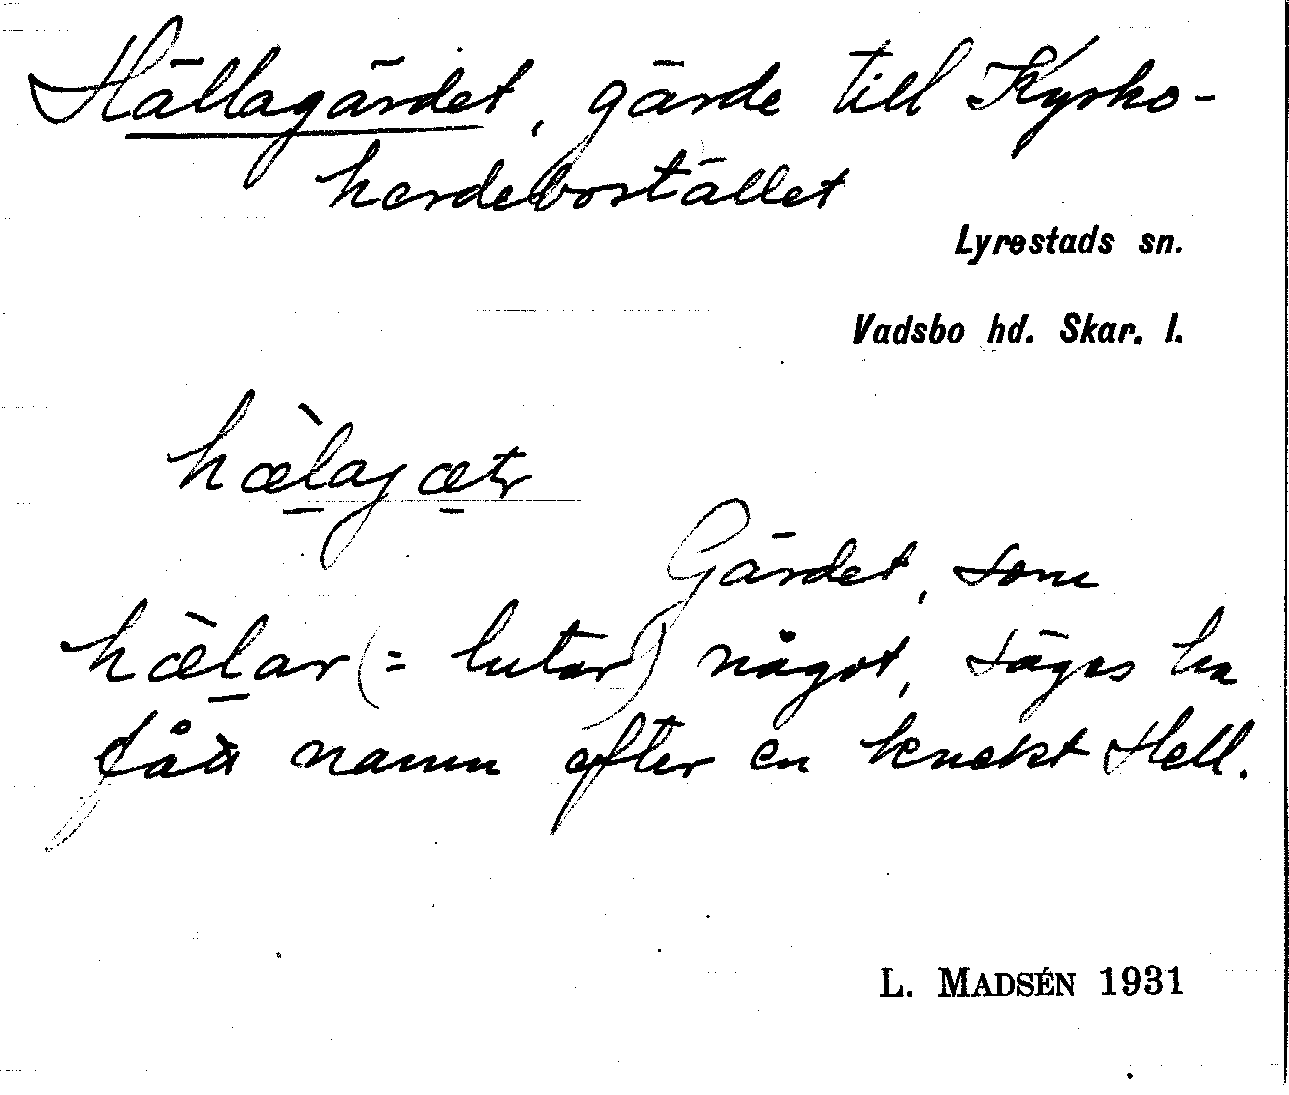 Hällagärdet, gärde till Kyrko-
herdebostället
Lyrestads sn.
Vadsbo hd. Skar. l.
hæ̀lagætr
Gärdet, som
hæ̀lar (= lutar) något, säges ha
fått namn efter en knekt Hell.
L. MADSÉN 1931